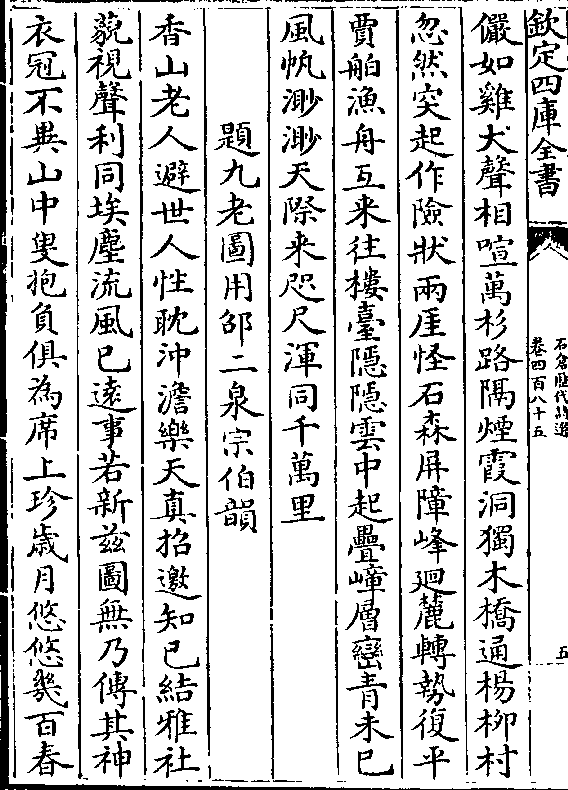 欽定四庫全書
石倉歷代詩選
卷四百八十五
五
儼如雞犬聲相喧萬杉路隔煙霞洞獨木橋通楊柳村
忽然突起作險狀兩厓怪石森屏障峰廻麓轉勢復平
賈舶漁舟互来往樓臺隠隠雲中起疊嶂層巒青未已
風帆渺渺天際来咫尺渾同千萬里
題九老圖用邵二泉宗伯韻
香山老人避世人性耽沖澹樂天真招邀知已結雅社
藐視聲利同埃塵流風已遠事若新兹圖無乃傳其神
衣冠不異山中叟抱負俱為席上珍歳月悠悠幾百春